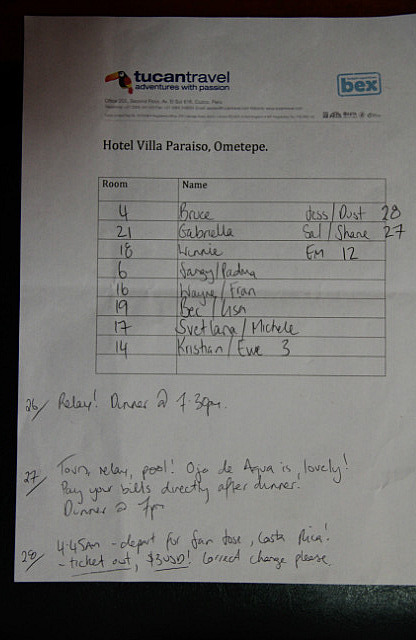 tucantravel
adventures with passion
bex
Hotel Villa Paraiso, Ometepe.
Room Name
4 Bruce Jess/Dust 28
21 Gabriella Sal/Shane 27
18 Winnie Em 12
6 Sanjy/Padma
16 Wayne/Fran
19 Bec/Lisa
17 Svetlana/Michele
14 Kristian/Ewe 3
26/ Relax! Dinner @ 7.30pm.
27/ Tours, relax, pool! Ojo de Agua is lovely!
Pay your bills directly after dinner.
Dinner @ 7pm
28/ 4.45am - depart for San Jose, Costa Rica!
- ticket out, $3USD! Correct change please.